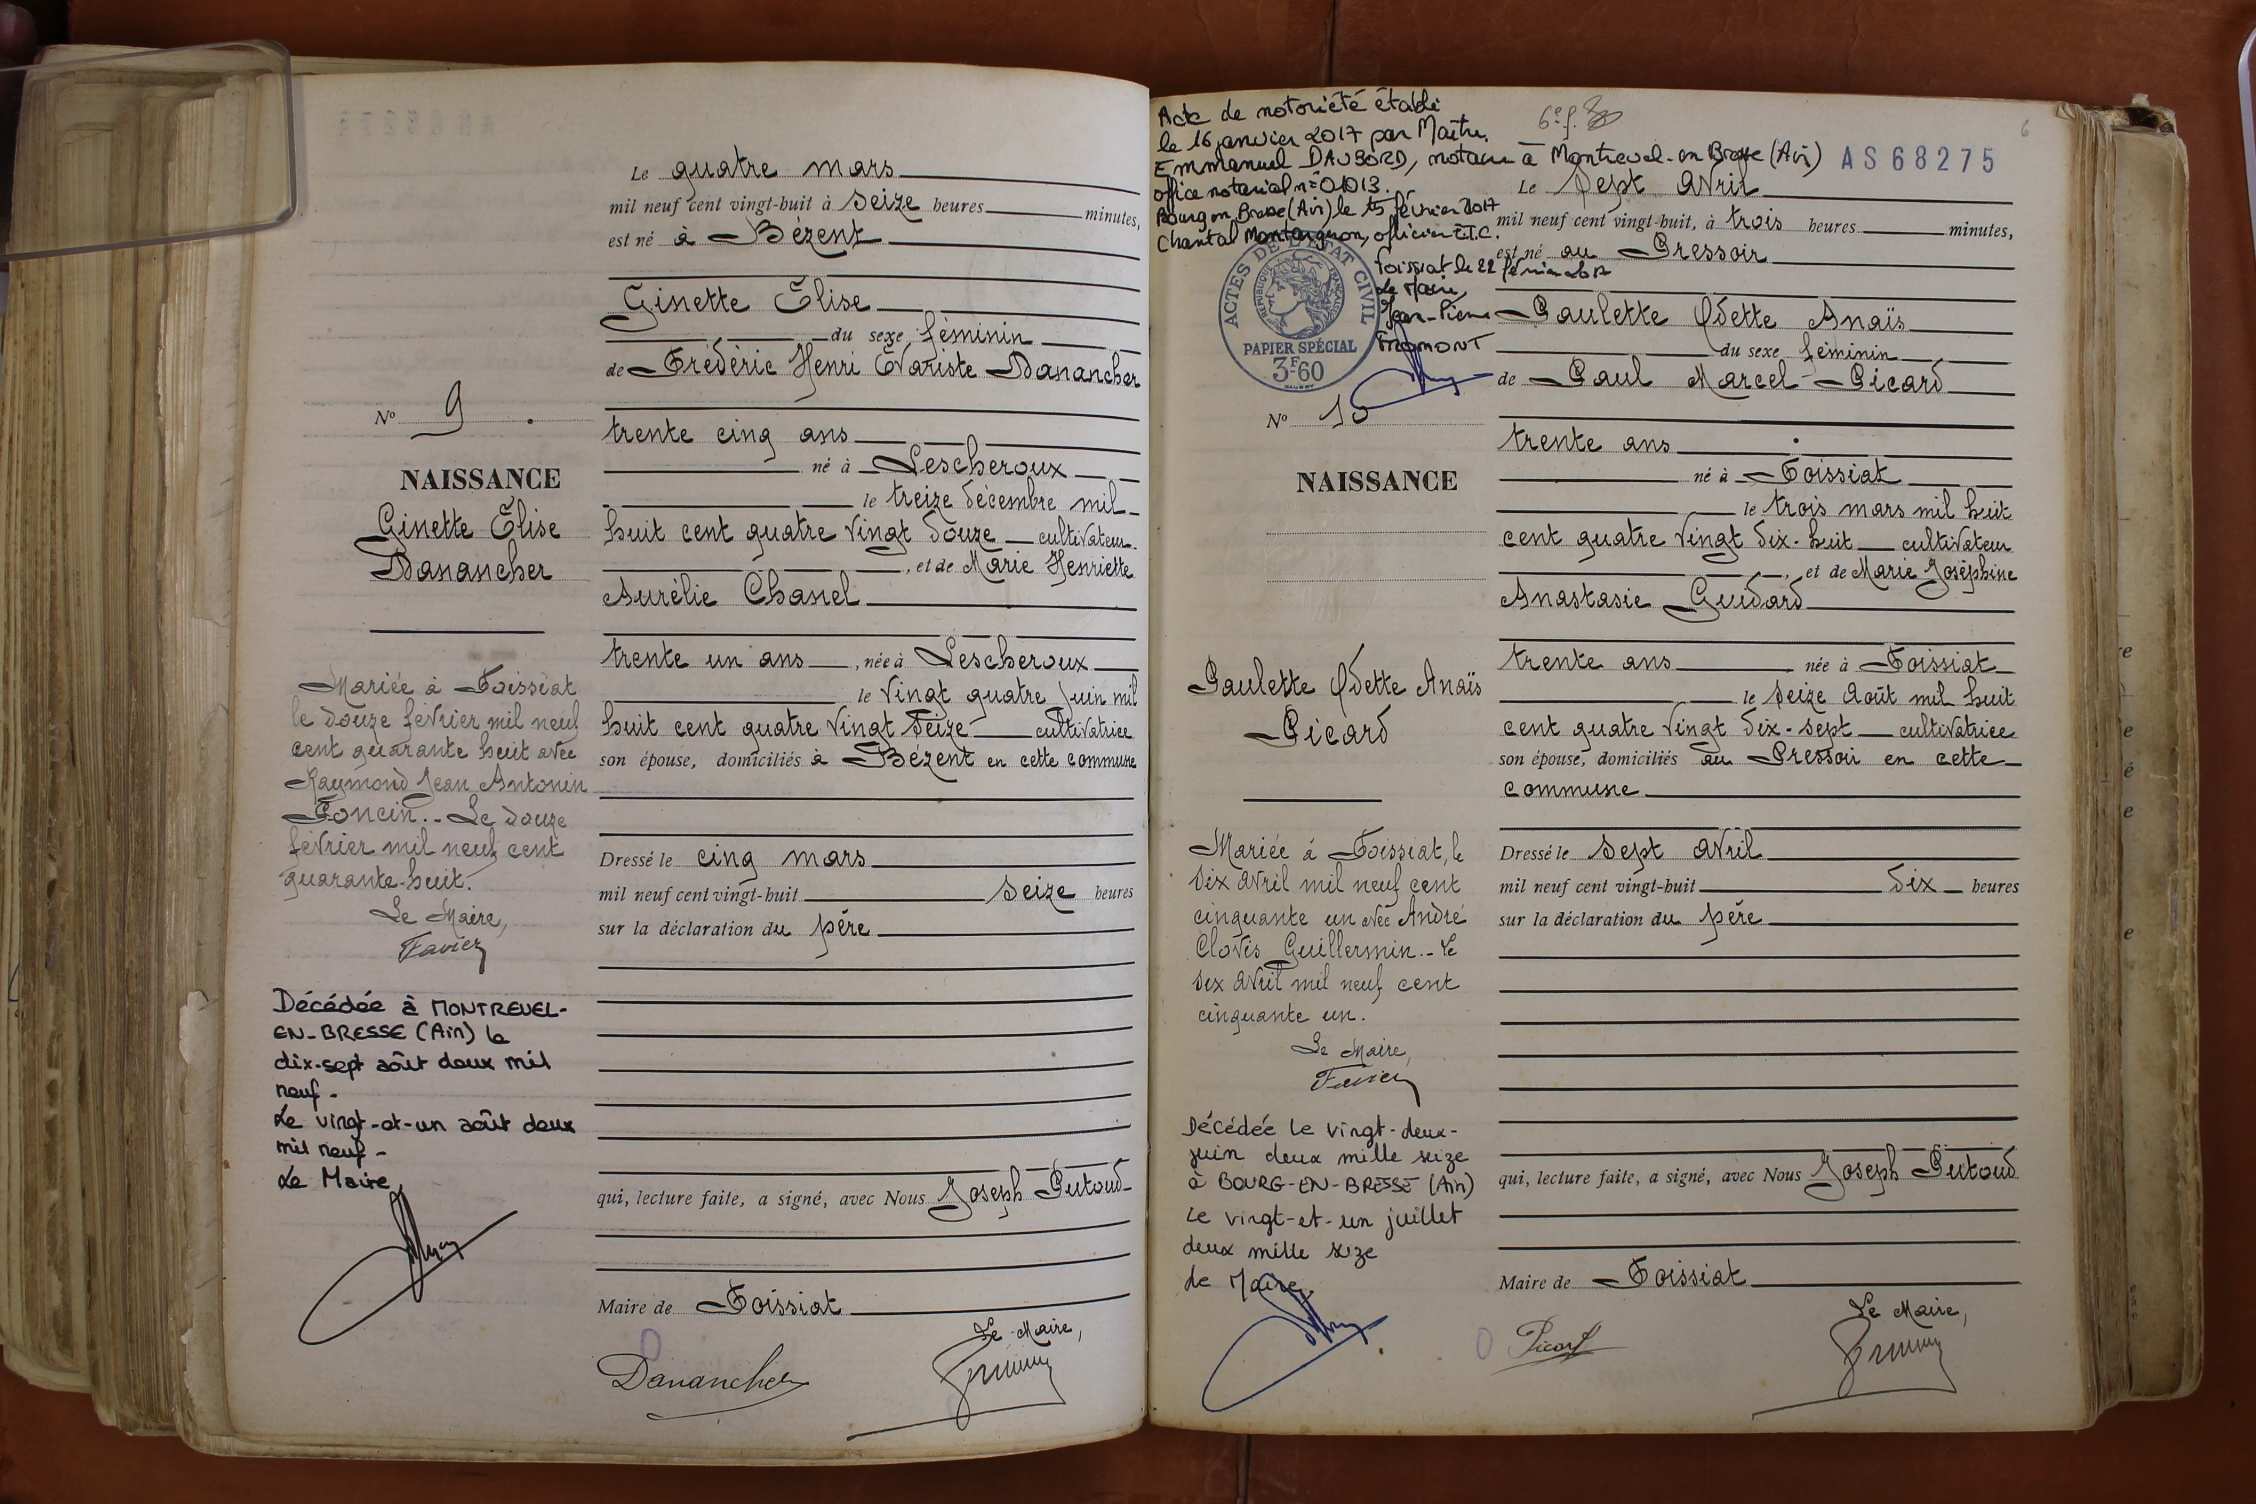 Le quatre mars
mil neuf cent vingt-huit à seize heures minutes,
est né à Bézent
Ginette Élise
du sexe féminin
de Frédéric Henri Évariste Danancher
trente cinq ans
né à Lescheroux
le treize décembre mil
huit cent quatre vingt douze cultivateur
, et de Marie Henriette
Aurélie Chanel
trente un ans , née à Lescheroux
le vingt quatre juin mil
huit cent quatre vingt seize cultivatrice
son épouse, domiciliés à Bézent en cette commune
Dressé le cinq mars
mil neuf cent vingt-huit seize heures
sur la déclaration du père
qui, lecture faite, a signé, avec Nous Joseph Putoud
Maire de Foissiat
Le Maire,
Danancher
No 9
NAISSANCE
Ginette Élise
Danancher
Mariée à Foissiat
le douze février mil neuf
cent quarante huit avec
Raymond Jean Antonin
Poncin.- Le douze
février mil neuf cent
quarante-huit.
Le Maire,
Favier
Décédée à MONTREVEL-
EN-BRESSE (Ain) le
dix-sept août deux mil
neuf -
Le vingt-et-un août deux
mil neuf -
Le Maire,
Acte de notoriété établi
le 16 janvier 2017 par Maître
Emmanuel DAUBORD, notaire à Montrevel-en Bresse (Ain)
office notarial n° 01013.
Bourg en Bresse (Ain) le 15 février 2017
Chantal Montangnon, officier E.C.
Foissiat le 22 février 2017
Le Maire,
Jean-Pierre
FROMONT
6
AS68275
ACTES DE L'ETAT CIVIL
REPUBLIQUE FRANÇAISE
PAPIER SPÉCIAL
3F60
Le sept avril
mil neuf cent vingt-huit, à trois heures minutes,
est né au Pressoir
Paulette Odette Anaïs
du sexe féminin
de Paul Marcel Picard
trente ans
né à Foissiat
le trois mars mil huit
cent quatre vingt dix-huit cultivateur
, et de Marie Joséphine
Anastasie Guidard
trente ans née à Foissiat
le seize août mil huit
cent quatre vingt dix-sept cultivatrice
son épouse, domiciliés au Pressoir en cette
commune
Dressé le sept avril
mil neuf cent vingt-huit dix heures
sur la déclaration du père
qui, lecture faite, a signé, avec Nous Joseph Putoud
Maire de Foissiat
Le Maire,
Picard
No 10
NAISSANCE
Paulette Odette Anaïs
Picard
Mariée à Foissiat, le
dix avril mil neuf cent
cinquante un avec André
Clovis Guillermin.- Le
dix avril mil neuf cent
cinquante un.
Le Maire,
Favier
Décédée le vingt-deux-
juin deux mille seize
à BOURG-EN-BRESSE (Ain)
Le vingt-et-un juillet
deux mille seize
Le Maire,